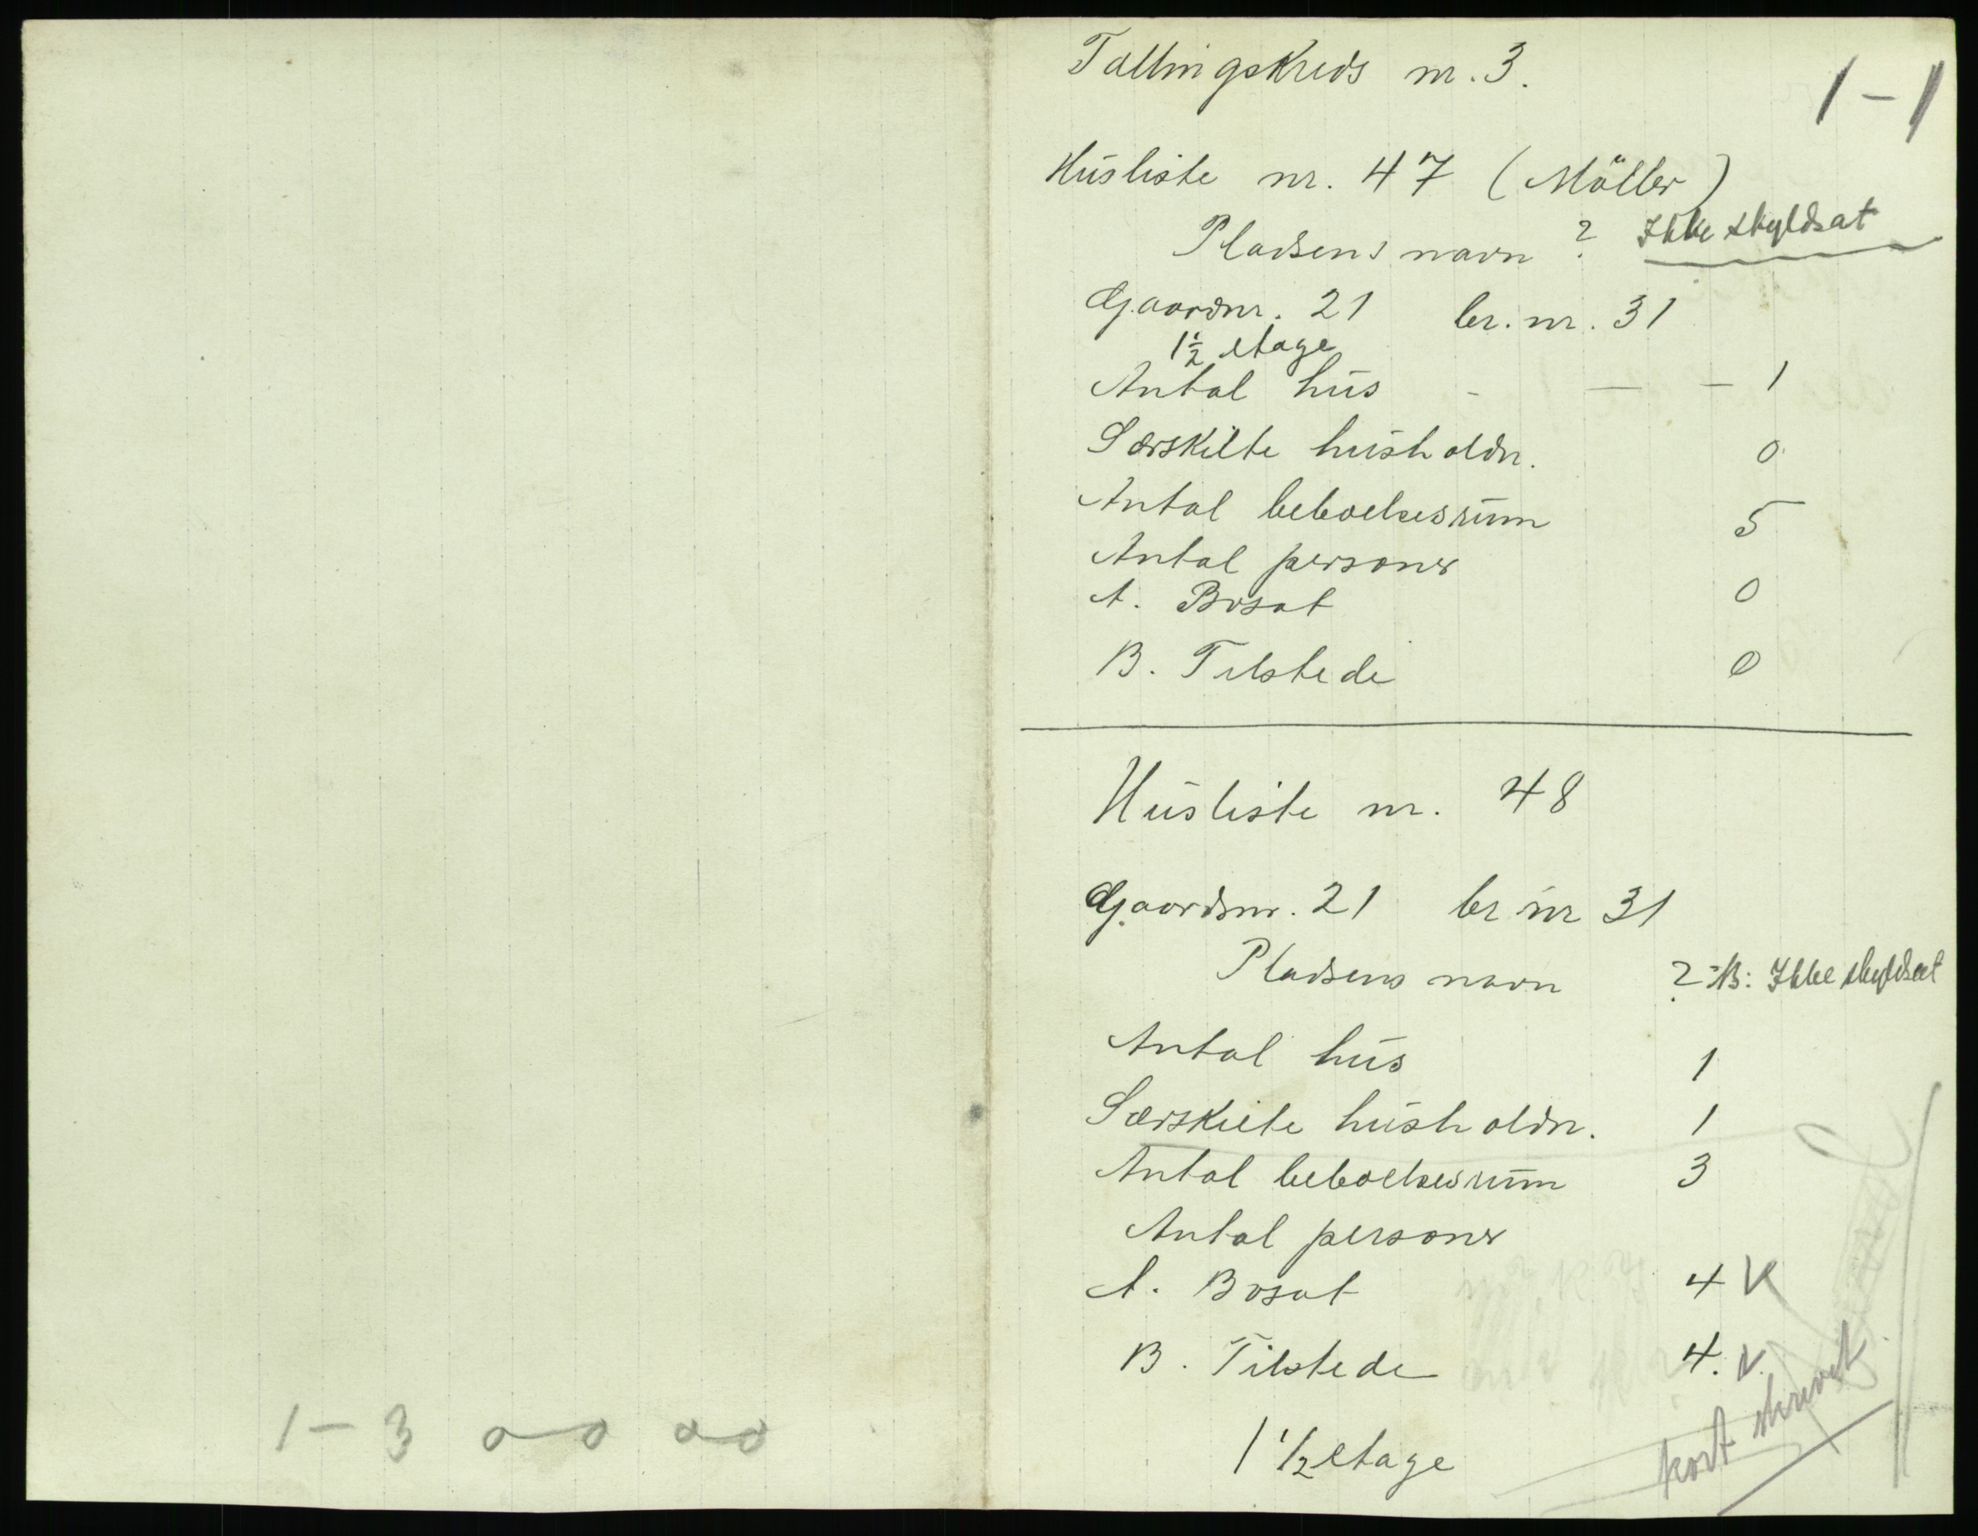 1 - 3 0-0 0-0
Tællingskreds nr. 3.
1 - 1
Husliste nr. 47 (Möller)
Pladsens navn ? Ikke skyldsat
Gaardnr. 21 br. nr. 31
1½ etage
Antal hus - — - 1
Særskilte hush oldn. 0
Antal beboelsesrum 5
Antal personer
A. Bosat 0
B. Tilstede 0
Husliste nr. 48
Gaardsnr. 21 br nr 31
Pladsens navn ? B: Ikke skyldsat
Antal hus 1
Særskilte hush oldn. 1
Antal beboelsesrum 3
Antal personer
A. Bosat 4 K
B. Tilstede 4. v.
1 ½ etage
kort skrevet